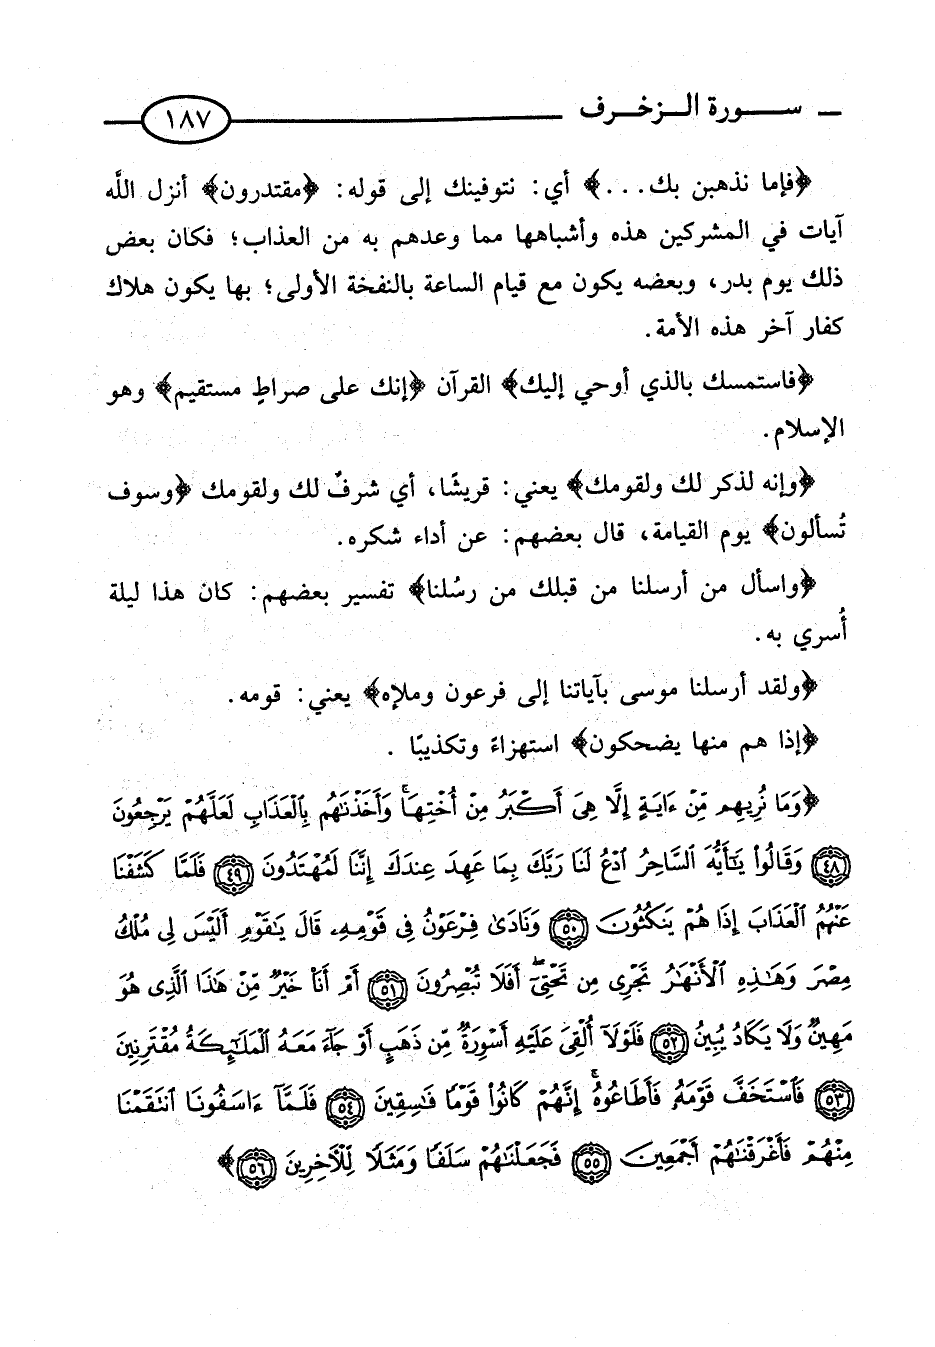 سورة الزخرف ١٨٧
﴿فإما نذهبن بك...﴾ أي: نتوفينك إلى قوله: ﴿مقتدرون﴾ أنزل اللَّه
آيات في المشركين هذه وأشباهها مما وعدهم به من العذاب؛ فكان بعض
ذلك يوم بدر، وبعضه يكون مع قيام الساعة بالنفخة الأولى؛ بها يكون هلاك
كفار آخر هذه الأمة.
﴿فاستمسك بالذي أوحي إليك﴾ القرآن ﴿إنك على صراطٍ مستقيم﴾ وهو
الإسلام.
﴿وإنه لذكر لك ولقومك﴾ يعني: قريشًا، أي شرفٌ لك ولقومك ﴿وسوف
تُسألون﴾ يوم القيامة، قال بعضهم: عن أداء شكره.
﴿واسأل من أرسلنا من قبلك من رسُلنا﴾ تفسير بعضهم: كان هذا ليلة
أُسري به.
﴿ولقد أرسلنا موسى بآياتنا إلى فرعون وملإه﴾ يعني: قومه.
﴿إذا هم منها يضحكون﴾ استهزاءً وتكذيبًا .
﴿وَمَا نُرِيهِم مِّنْ ءَايَةٍ إِلَّا هِىَ أَكْبَرُ مِنْ أُخْتِهَاۖ وَأَخَذْنَٰهُم بِٱلْعَذَابِ لَعَلَّهُمْ يَرْجِعُونَ
٤٨ وَقَالُوا۟ يَٰٓأَيُّهَ ٱلسَّاحِرُ ٱدْعُ لَنَا رَبَّكَ بِمَا عَهِدَ عِندَكَ إِنَّنَا لَمُهْتَدُونَ ٤٩ فَلَمَّا كَشَفْنَا
عَنْهُمُ ٱلْعَذَابَ إِذَا هُمْ يَنكُثُونَ ٥٠ وَنَادَىٰ فِرْعَوْنُ فِى قَوْمِهِۦ قَالَ يَٰقَوْمِ أَلَيْسَ لِى مُلْكُ
مِصْرَ وَهَٰذِهِ ٱلْأَنْهَٰرُ تَجْرِى مِن تَحْتِىٓۖ أَفَلَا تُبْصِرُونَ ٥١ أَمْ أَنَا۠ خَيْرٌ مِّنْ هَٰذَا ٱلَّذِى هُوَ
مَهِينٌ وَلَا يَكَادُ يُبِينُ ٥٢ فَلَوْلَآ أُلْقِىَ عَلَيْهِ أَسْوِرَةٌ مِّن ذَهَبٍ أَوْ جَآءَ مَعَهُ ٱلْمَلَٰٓئِكَةُ مُقْتَرِنِينَ
٥٣ فَٱسْتَخَفَّ قَوْمَهُۥ فَأَطَاعُوهُۚ إِنَّهُمْ كَانُوا۟ قَوْمًا فَٰسِقِينَ ٥٤ فَلَمَّآ ءَاسَفُونَا ٱنتَقَمْنَا
مِنْهُمْ فَأَغْرَقْنَٰهُمْ أَجْمَعِينَ ٥٥ فَجَعَلْنَٰهُمْ سَلَفًا وَمَثَلًا لِّلْءَاخِرِينَ ٥٦﴾